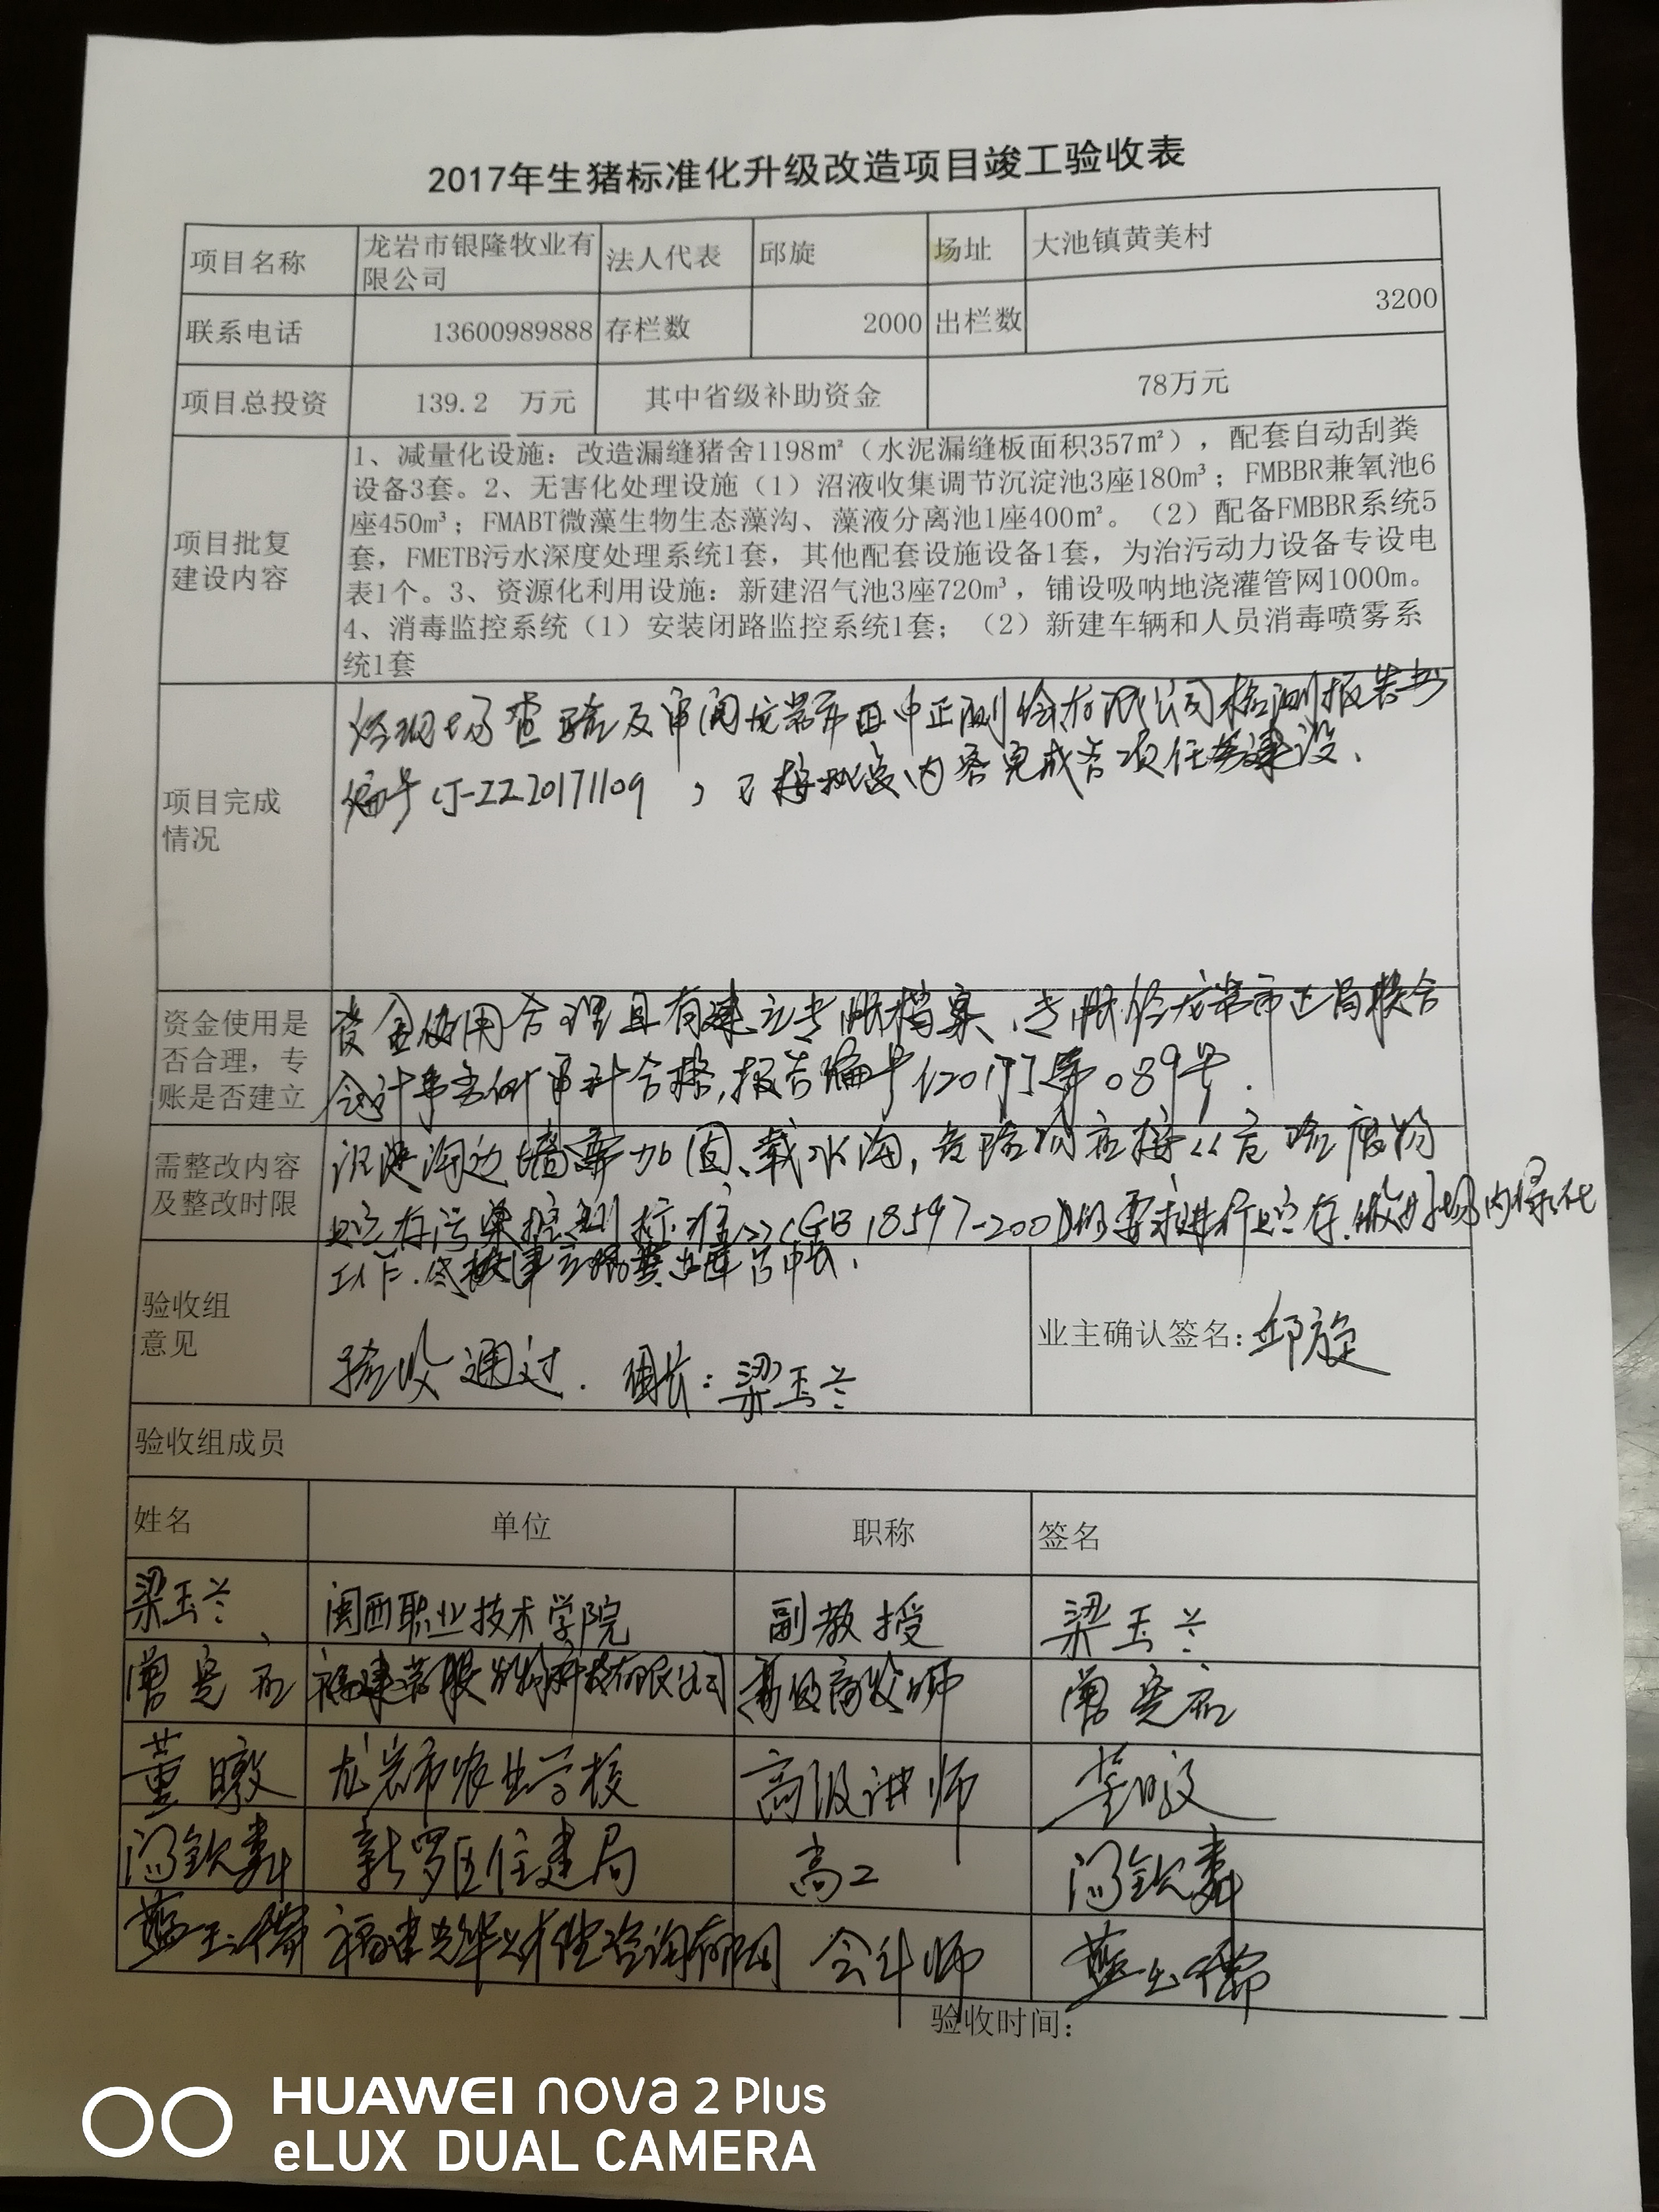 2017年生猪标准化升级改造项目竣工验收表
项目名称 龙岩市银隆牧业有限公司 法人代表 邱旋 场址 大池镇黄美村
联系电话 13600989888 存栏数 2000 出栏数 3200
项目总投资 139.2 万元 其中省级补助资金 78万元
项目批复建设内容
1、减量化设施：改造漏缝猪舍1198㎡（水泥漏缝板面积357㎡），配套自动刮粪
设备3套。2、无害化处理设施（1）沼液收集调节沉淀池3座180m³；FMBBR兼氧池6
座450m³；FMABT微藻生物生态藻沟、藻液分离池1座400㎡。（2）配备FMBBR系统5
套，FMETB污水深度处理系统1套，其他配套设施设备1套，为治污动力设备专设电
表1个。3、资源化利用设施：新建沼气池3座720m³，铺设吸呐地浇灌管网1000m。
4、消毒监控系统（1）安装闭路监控系统1套；（2）新建车辆和人员消毒喷雾系
统1套
项目完成情况
经现场查验及审阅龙岩市中正测绘有限公司检测报告书
编号 ZZ20171109，已按批复内容完成各项任务建设、
资金使用是否合理，专账是否建立
资金使用合理且有建立专账档案、专账经龙岩市正局联合
会计事务所审计合格，报告编号〔2017〕第089号.
需整改内容及整改时限
沉淀沟边墙需加固、截水沟，危险物应按《危险废物
贮存污染控制标准》（GB18597-2001）的要求进行贮存.做好场内绿化
工作.
验收组意见
验收通过. 组长：梁玉兰
业主确认签名：邱旋
验收组成员
姓名 单位 职称 签名
梁玉兰 闽西职业技术学院 副教授 梁玉兰
曾 福建 生物科技有限公司 高级畜牧师 曾
董暾 龙岩市农业学校 高级讲师 董暾
钦 新罗区住建局 高工 钦
蓝玉 福建 咨询有限公司 会计师 蓝玉
验收时间：
HUAWEI nova 2 Plus
eLUX DUAL CAMERA